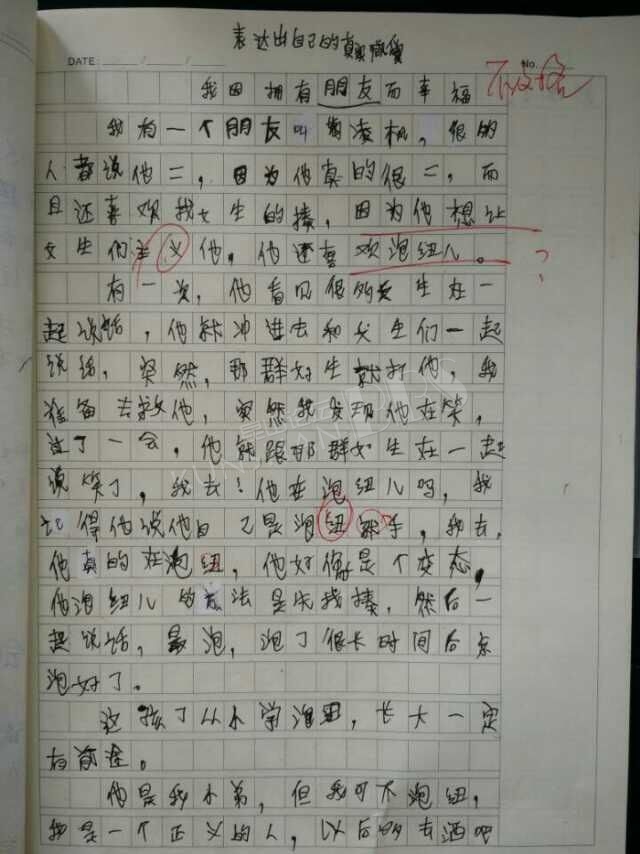 表达出自己的真实感受
DATE: / /
No.
不及格
我因拥有朋友而幸福
我有一个朋友叫凌机，很的
人都说他二，因为他真的很二，而
且还喜欢找女生的揍，因为他想让
女生们注义他，他还喜欢泡纽儿。
？
有一次，他看见很多女生在一
起说话，他就冲进去和女生们一起
说话，突然，那群女生就打他，我
准备去救他，突然我发现他在笑，
过了一会，他就跟那群女生在一起
说笑了，我去！他在泡纽儿吗，我
记得他说他自己是泡纽能手，我去，
他真的在泡纽，他好像是个变态，
他泡纽儿的方法是先找揍，然后一
起说话，最泡，泡了很长时间后就
泡好了。
这孩子从小学泡纽，长大一定
有前途。
他是我小弟，但我可不泡纽，
我是一个正义的人，以后少去酒吧